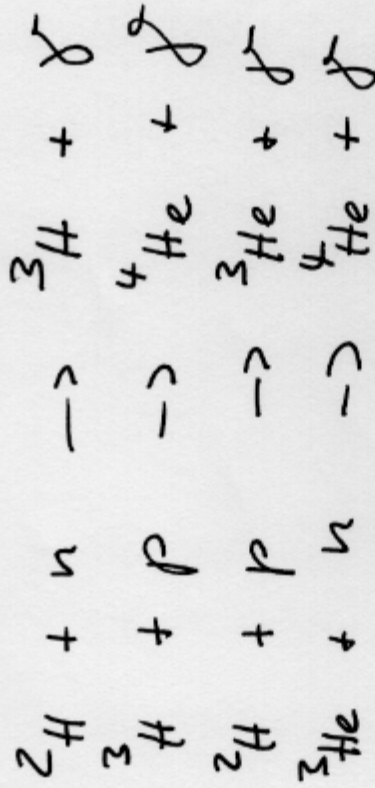 ²H + n -> ³H + γ
³H + p -> ⁴He + γ
²H + p -> ³He + γ
³He + n -> ⁴He + γ